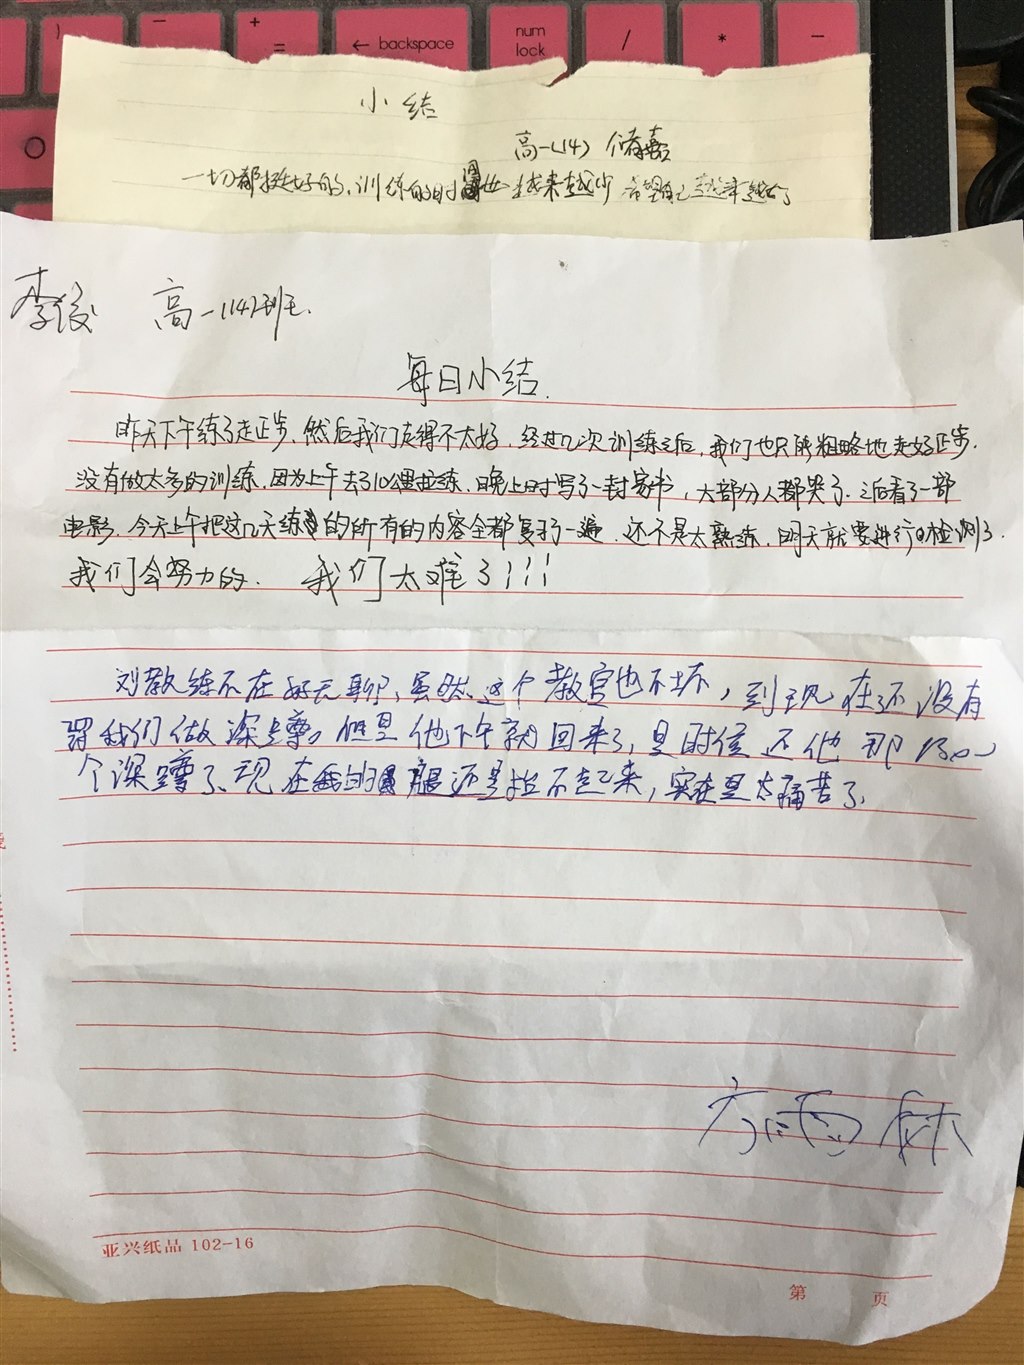 backspace
num
lock
/
*
−
+
=
小结
高一(14) 储嘉
一切都挺好的,训练的时间也越来越少 希望自己越来越好
李俊 高一(14)班.
每日小结.
昨天下午练了走正步.然后我们走得不太好.经过几次训练之后,我们也只能粗略地走好正步.
没有做太多的训练.因为上午去了10公里拉练.晚上时写了一封家书,大部分人都哭了.之后看了一部
电影.今天上午把这几天练的所有的内容全都复习了一遍.还不是太熟练.明天就要进行检测了.
我们会努力的. 我们太难了!!!
刘教练不在好无聊,虽然这个教官也不坏,到现在还没有
罚我们做深蹲。但是他下午就回来了,是时候还他那
个深蹲了、现在我的腿还是抬不起来,实在是太痛苦了.
方雨
亚兴纸品 102-16
第 页